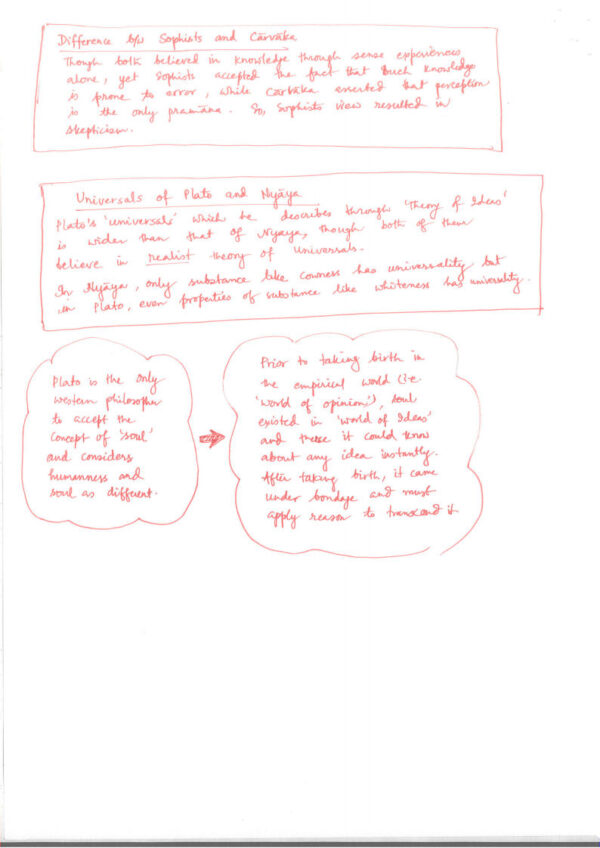 Difference b/w Sophists and Cārvāka
Though both believed in knowledge through sense experiences
alone, yet Sophists accepted the fact that such knowledge
is prone to error, while Cārvāka asserted that perception
is the only pramāna. So, Sophists view resulted in
skepticism.
Universals of Plato and Nyāya
Plato's 'universals' which he describes through 'Theory of Ideas'
is wider than that of Nyaya, though both of them
believe in realist theory of Universals.
In Nyāya, only substance like cowness has universality but
in Plato, even properties of substance like whiteness has universality.
Plato is the only
western philosopher
to accept the
concept of 'soul'
and considers
humanness and
soul as different.
Prior to taking birth in
the empirical world (i.e.
'world of opinion'), soul
existed in 'world of Ideas'
and there it could know
about any idea instantly.
After taking birth, it came
under bondage and must
apply reason to transcend it.